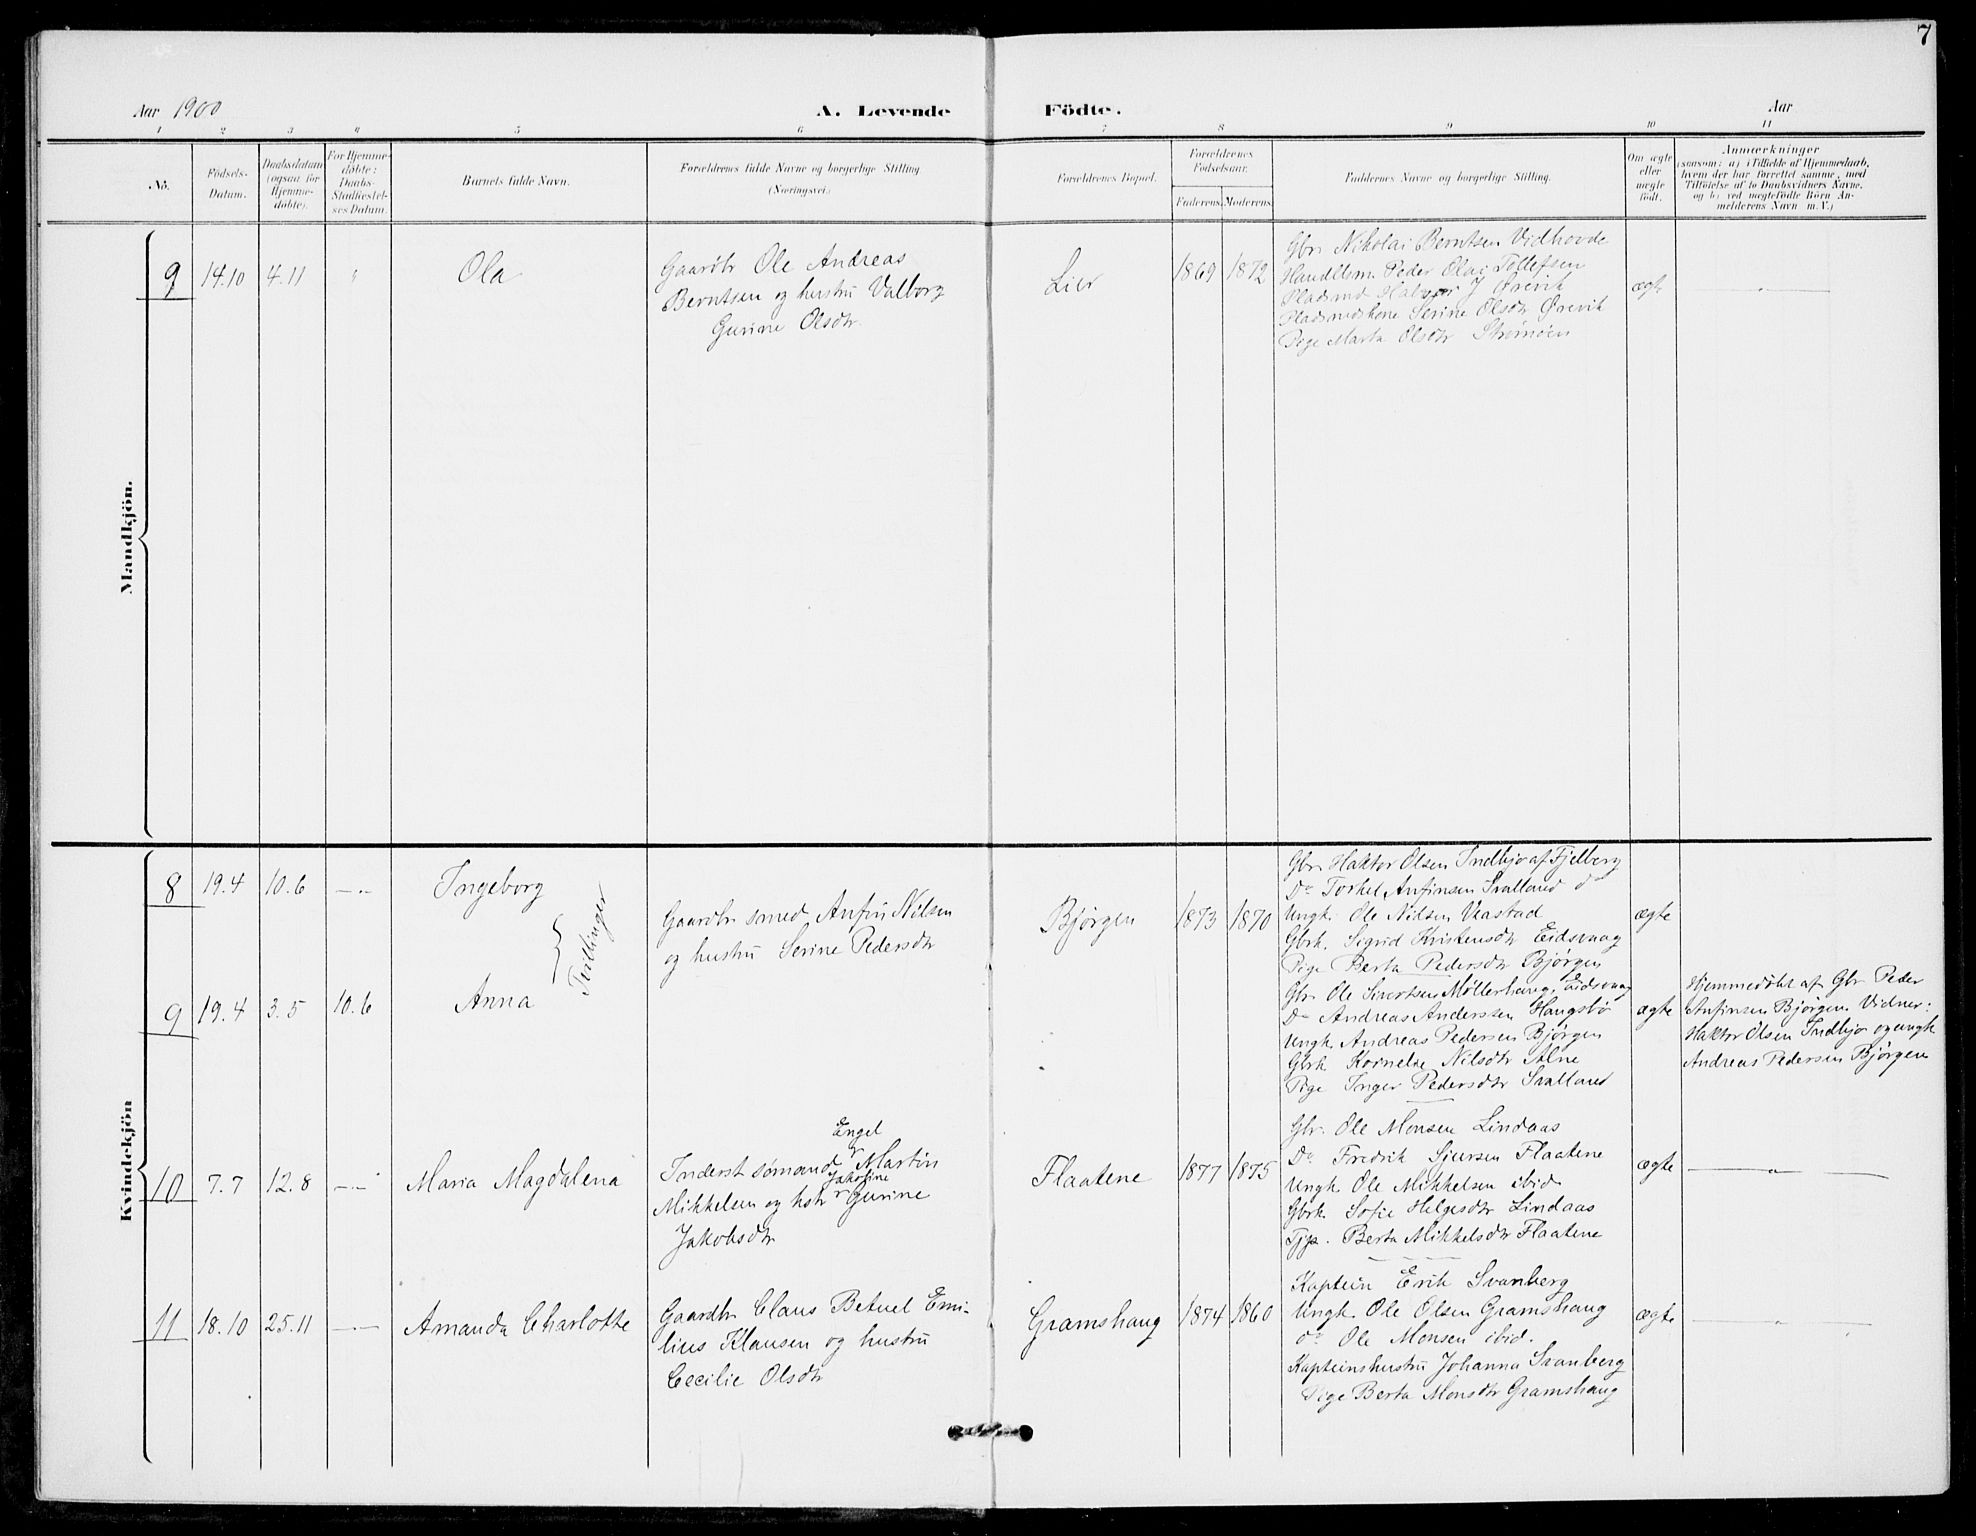 7
Aar 1900
A. Levende Födte.
Aar
1 2 3 4 5 6 7 8 9 10 11
No.
Födsels-
Datum.
Daabsdatum
(ogsaa for
Hjemme-
döbte).
For Hjemme-
döbte:
Daabs-
Stadfæstel-
ses Datum.
Barnets fulde Navn.
Forældrenes fulde Navne og borgerlige Stilling
(Næringsvei.)
Forældrenes Bopæl.
Forældrenes
Födselsaar.
Faderens. Moderens.
Faddernes Navne og borgerlige Stilling.
Om ægte
eller
uægte
födt.
Anmærkninger
(saasom: a) i Tilfælde af Hjemmedaab,
hvem der har forrettet samme, med
Tilföielse af to Daabsvidners Navne,
og b) ved uægtefödte Börn An-
melderens Navn m. V.)
Mandkjön.
9 14.10 4.11 " Ola
Gaardbr Ole Andreas
Berntsen og hustru Valborg
Gurine Olsdtr.
Lier 1869 1872
Gbr. Nikolai Berntsen Vidhovde
Handlsm. Peder Olai Tollefsen
Pladsmd Halvor J Ørevik
Pladsmdskone Serine Olsdtr Ørevik
Pige Marta Olsdtr Strømøen
ægte — " —
Kvindekjön
8 19.4 10.6 —"— Ingeborg
Tvillinger
Gaardbr smed Anfin Nilsen
og hustru Serine Pedersdtr
Bjørgen 1873 1870
Gbr. Haktor Olsen Indbjo af Fjelberg
Do Torkel Anfinsen Svalland do
Ungk. Ole Nilsen Veastad
Gbrk. Sigrid Kristensdtr Eidsvaag
Pige Berta Pedersdtr Bjørgen
ægte
9 19.4 3.5 10.6 Anna
Gbr. Ole Sivertsen Møllerhaug, Eidsvaag
Do Andreas Anderssen Haugsbø
Ungk. Andreas Pedersen Bjørgen
Gbrk Kornelse Nilsdtr Alne
Pige Inger Pedersdtr Svalland
ægte
Hjemmedøbt af Gbr Peder
Anfinsen Bjørgen. Vidner:
Haktor Olsen Indbjo og ungk
Andreas Pedersen Bjørgen
10 7.7 12.8 —"— Maria Magdalena
Engel
Inderst sømand Martin
Jakobine
Mikkelsen og hstr Gurine
Jakobsdtr
Flaatene 1877 1875
Gbr. Ole Monsen Lindaas
Do Fredrik Sjursen Flaatene
Ungk Ole Mikkelsen ibid
Gbrk. Sofie Helgesdtr Lindaas
Tjp. Berta Mikkelsdtr Flaatene
ægte — " —
11 18.10 25.11 —— Amanda Charlotte
Gaardbr Claus Betuel Emi-
lius Klausen og hustru
Cecilie Olsdtr
Gramshaug 1874 1860
Kaptein Erik Svanberg
Ungk. Ole Olsen Gramshaug
do Ole Monsen ibid.
Kapteinshustru Johanna Svanberg
Pige Berta Monsdtr Gramshaug
ægte — " —